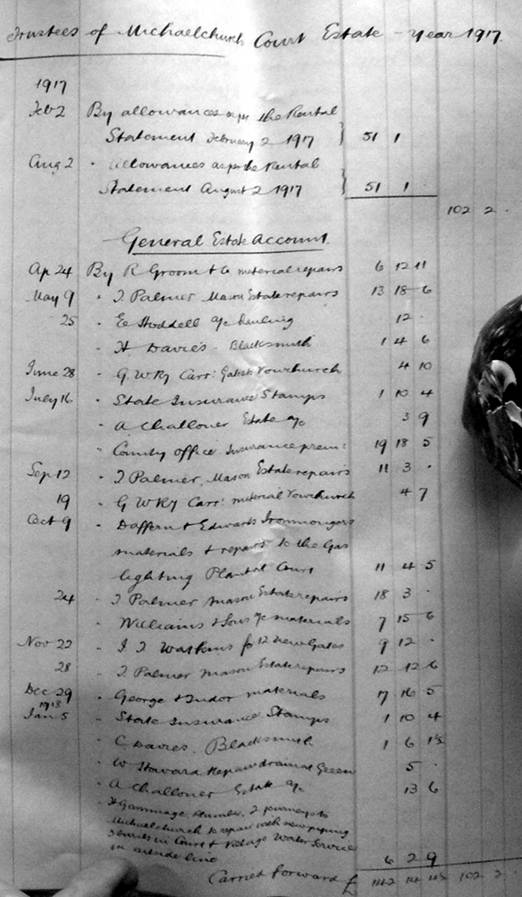 Trustees of Michaelchurch Court Estate - Year 1917.
1917
Feb 2 By allowances as per the Rental
Statement February 2 1917 } 51 1
Aug 2 " allowances as per the Rental
Statement August 2 1917 } 51 1 .
102 2 .
General Estate Account.
Ap 24 By R Groom & Co material repairs 6 12 11
May 9 " T Palmer Mason Estate repairs 13 18 6
25 " E Hoddell a/c hauling 12 .
" H Davies - Blacksmith 1 4 6
June 28 " G. W Ry Carr: Vowchurch 4 10
July 16 " State Insurance Stamps 1 10 4
" A Challoner Estate a/c 3 9
" County office Insurance prem: 19 18 5
Sep 12 " T Palmer, Mason Estate repairs 11 3 .
19 " G W Ry Carr: material Vowchurch 4 7
Oct 9 " Daffern & Edwards Ironmongers
materials & repairs to the Gas
lighting Plant at Court 11 4 5
24 " T Palmer Mason Estate repairs 18 3 .
" Williams & Sons a/c materials 7 15 6
Nov 22 " J. T Watkins for 12 new Gates 9 12 .
28 " T Palmer Mason Estate repairs 12 12 6
Dec 29 " George & Tudor materials 7 16 5
1918
Jan 5 " State Insurance Stamps 1 10 4
" C Davies, Blacksmith 1 6 1½
" W Howard Repair drain at Green 5 .
" A Challoner Estate a/c 13 6
" Gammage Plumber, 2 journeys to
Michaelchurch to repair with new piping
in Court & Village Water Service
in outside line 6 2 9
Carried forward £ 142 14 4½ 102 2 .